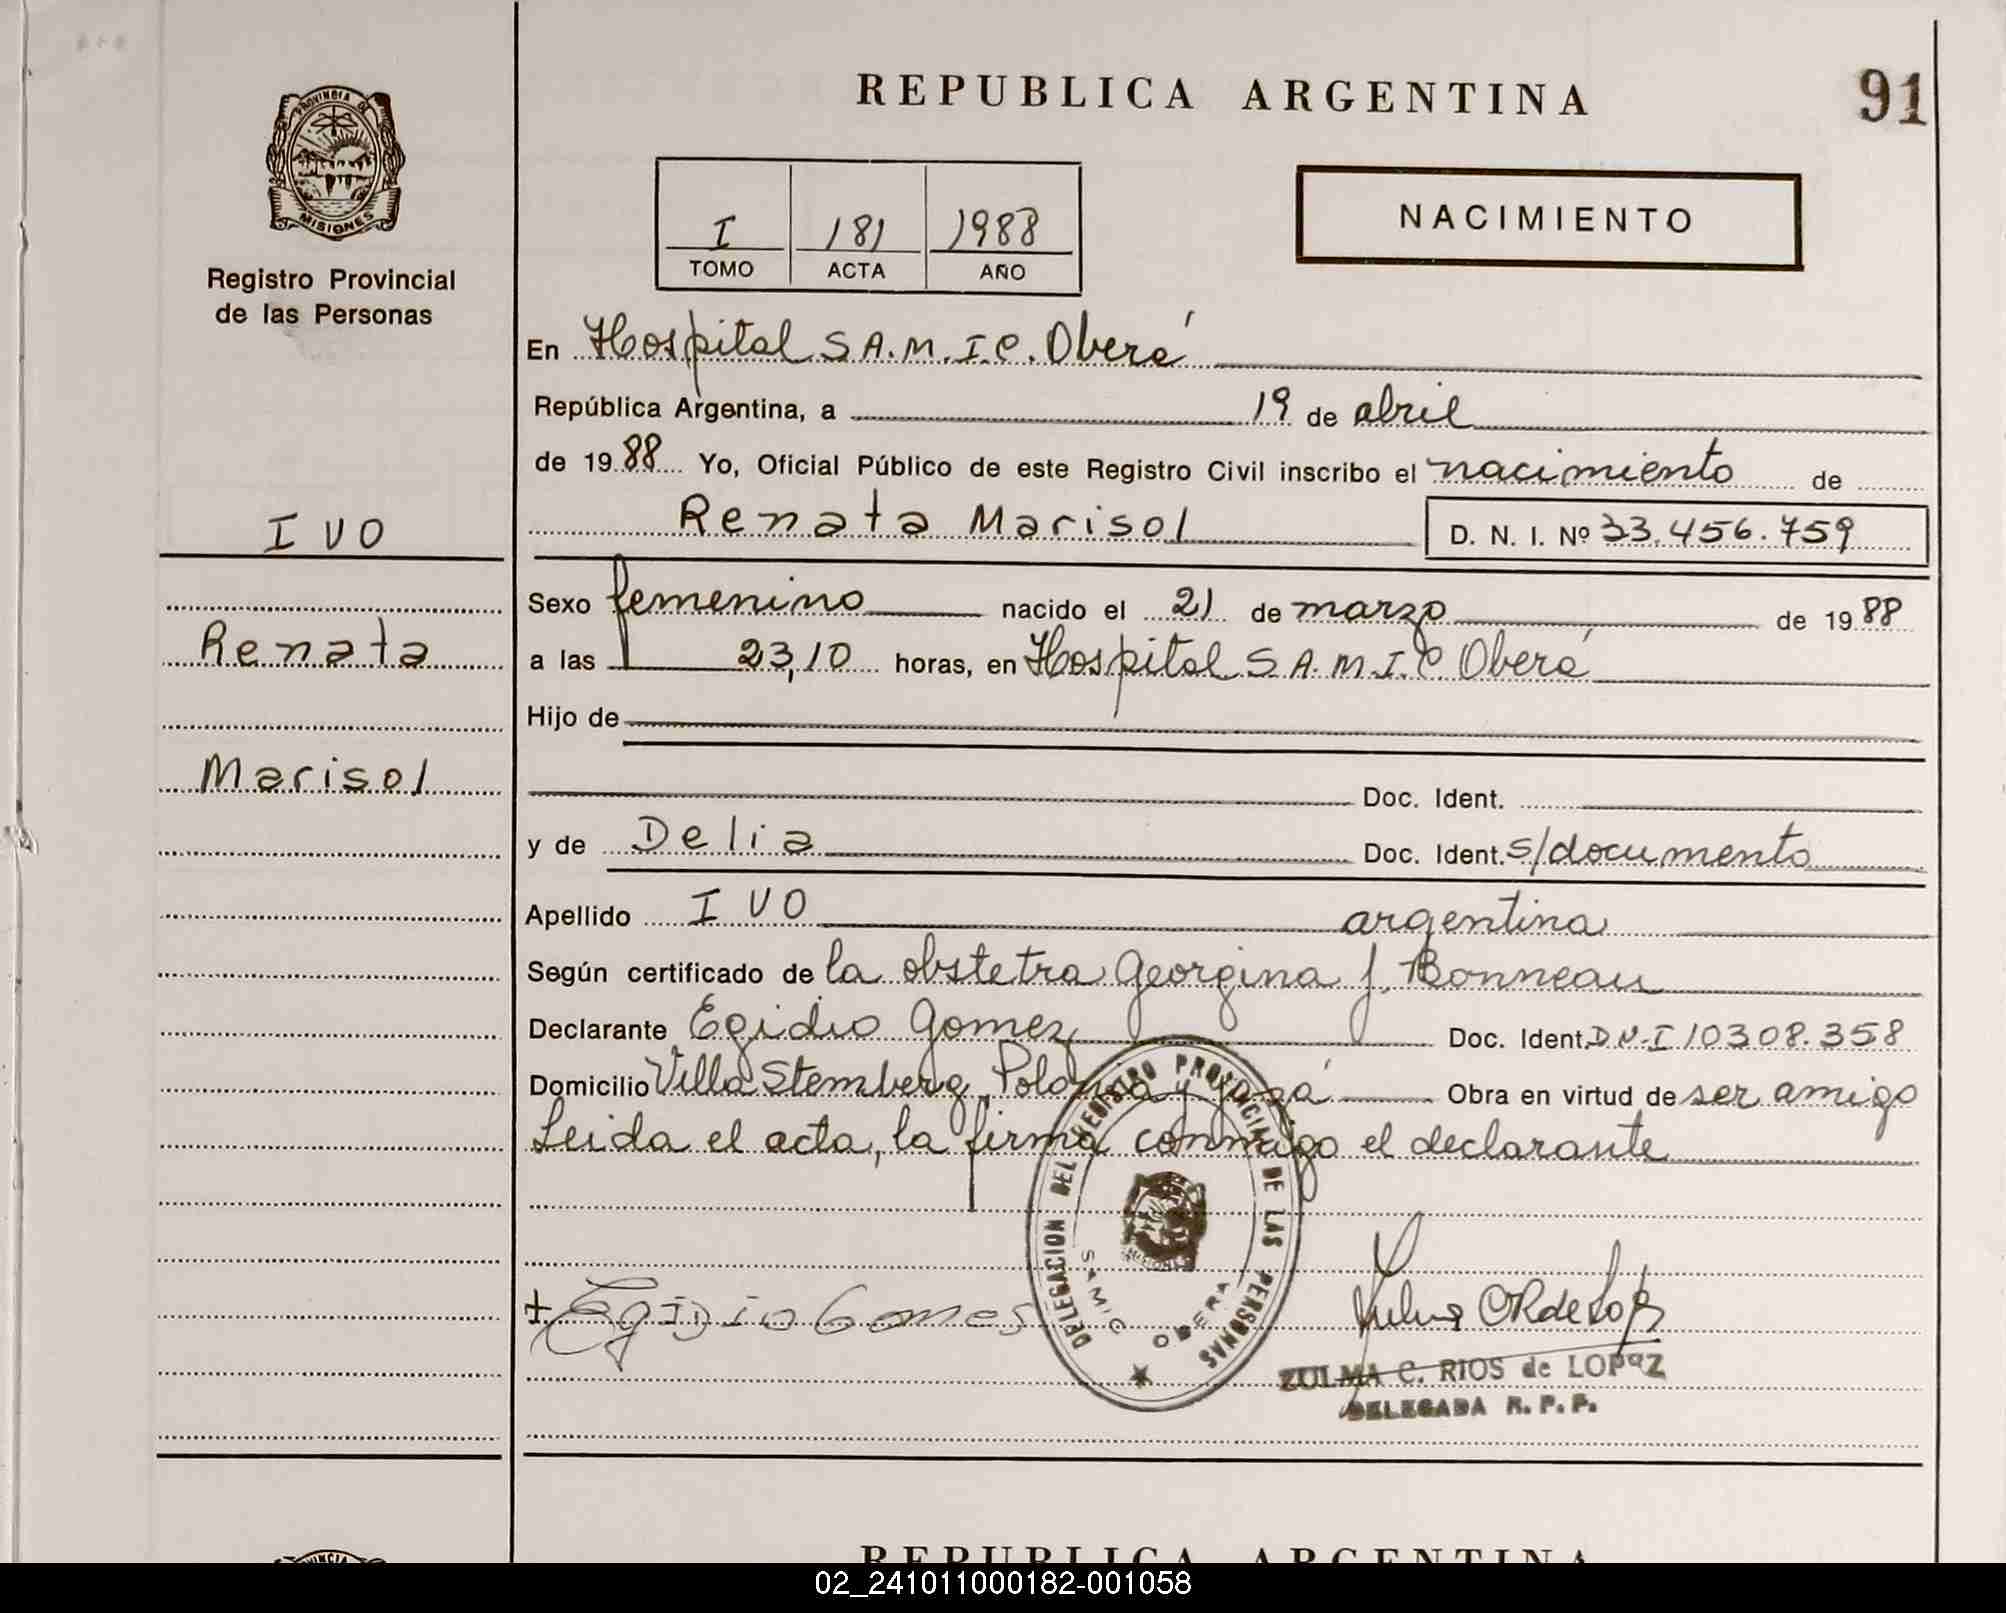 REPUBLICA ARGENTINA
91
PROVINCIA DE
MISIONES
Registro Provincial
de las Personas
I 181 1988
TOMO ACTA AÑO
NACIMIENTO
En Hospital S.A.M.I.C. Oberá
República Argentina, a 19 de abril
de 1988 Yo, Oficial Público de este Registro Civil inscribo el nacimiento de
Renata Marisol D. N. I. Nº 33.456.759
IVO
Sexo femenino nacido el 21 de marzo de 1988
Renata
a las 23,10 horas, en Hospital S.A.M.I.C Oberá
Hijo de
Marisol
Doc. Ident.
y de Delia Doc. Ident. s/documento
Apellido IVO argentina
Según certificado de la obstetra Georgina J. Bonneau
Declarante Egidio Gomez Doc. Ident. D.N.I 10308.358
Domicilio Villa Stemberg, Polonia y Obra en virtud de ser amigo
Leida el acta, la firma conmigo el declarante
DELEGACION DEL REGISTRO PROVINCIAL DE LAS PERSONAS
SAMIC OBERA
+ Egidio Gomes
ZULMA C. RIOS de LOPEZ
DELEGADA R. P. P.
REPUBLICA ARGENTINA
02_241011000182-001058